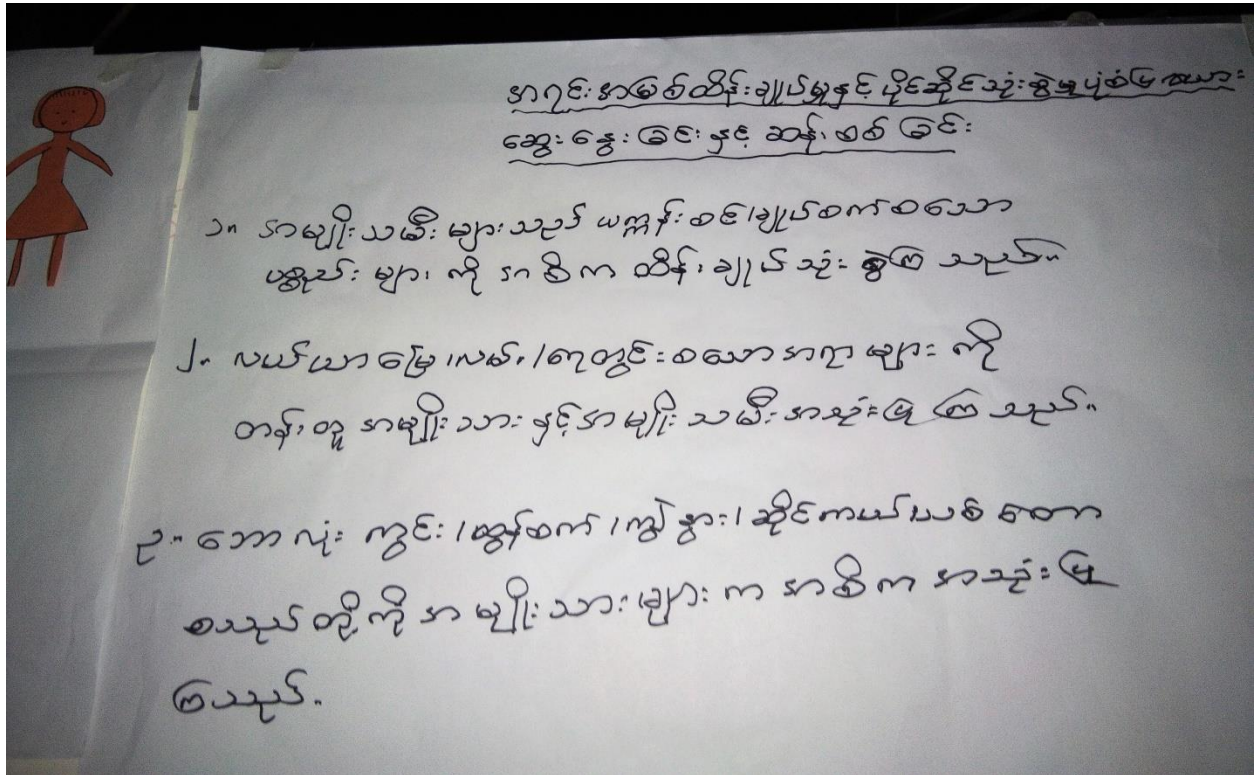 အရင်းအမြစ်ထိန်းချုပ်မှုနှင့် ပိုင်ဆိုင်သုံးစွဲမှုပုံစံပြ ဇယား
ဆွေးနွေးခြင်းနှင့် ဆန်းစစ်ခြင်း
၁။ အမျိုးသမီးများသည် ယက္ကန်းစင်/ချုပ်စက်စသော
ပစ္စည်းများကို အဓိက ထိန်းချုပ်သုံးစွဲကြသည်။
၂။ လယ်ယာမြေ/လမ်း/ရေတွင်းစသောအရာများကို
တန်းတူ အမျိုးသားနှင့်အမျိုးသမီးအသုံးပြုကြသည်။
၃။ ဘောလုံးကွင်း/ထွန်စက်/ကျွဲနွား/ဆိုင်ကယ်/သစ်တော
စသည်တို့ကို အမျိုးသားများက အဓိက အသုံးပြု
ကြသည်။